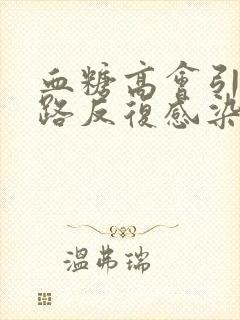 血糖高會引
路反復感染
温弗瑞